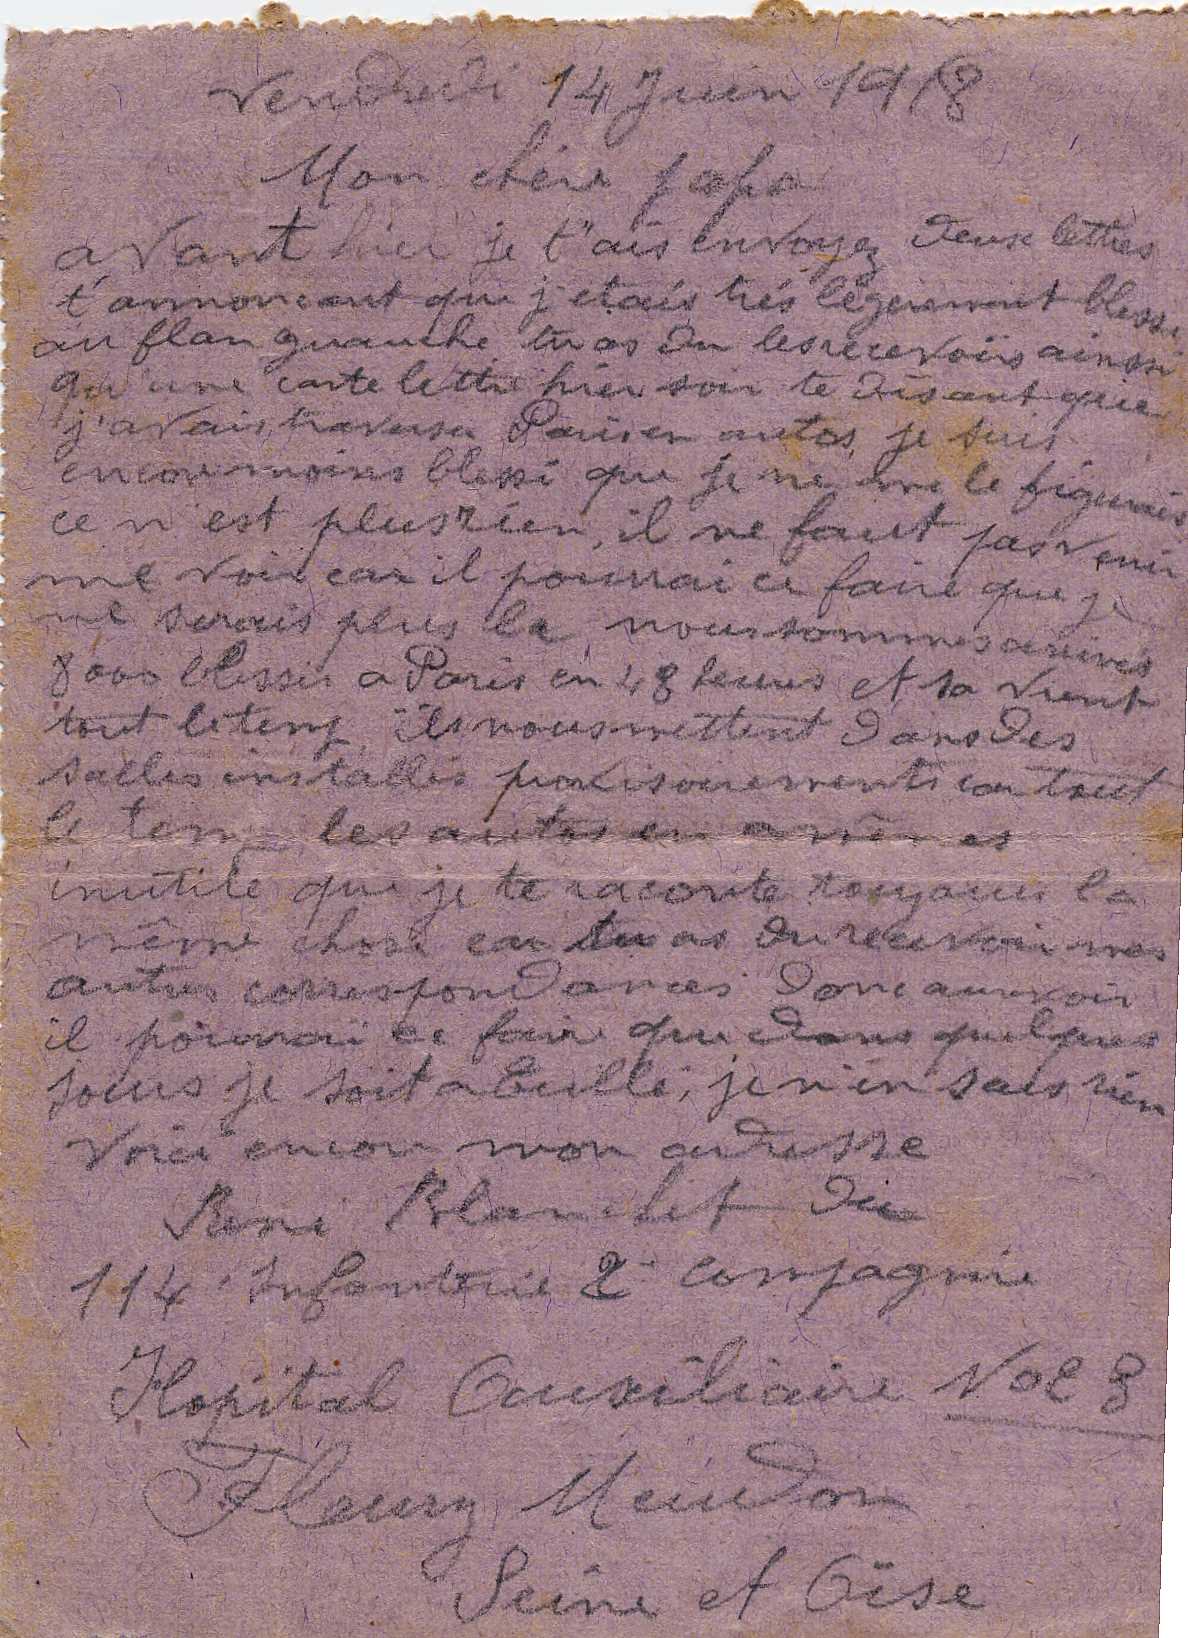 Vendredi 14 Juin 1918
Mon chére papa
avant hier je t'ais envoyez deux lettres
t'annoncant que j'etais trés légerement blessé
au flan gauche, tu as du les recevoirs ainssi
qu'une carte lettre hier soir te disant que
j'avais traverser Paris en autos, je suis
encore moins blessé que je ne me le figurais
ce n'est plus rien, il ne faut pas venir
me voir car il pourrai ce faire que je
ne serais plus la, nous sommes arrivés
8000 blessés a Paris en 48 heures et sa vient
tout le temp, ils nous mettent dans des
salles installés provisoirements car tout
le temp les autos en amènes
inutile que je te raconte toujours la
même chose car tu as du recevoir mes
autres correspondances donc aurevoir
il pourrai ce faire que dans quelques
jours je soit a Eullé, je n'en sais rien
Voici encore mon adresse
René Blanchet du
114 Infanterie 2e compagnie
Hopital Auxiliaire No 8
Fleury Meudon
Seine et Oise